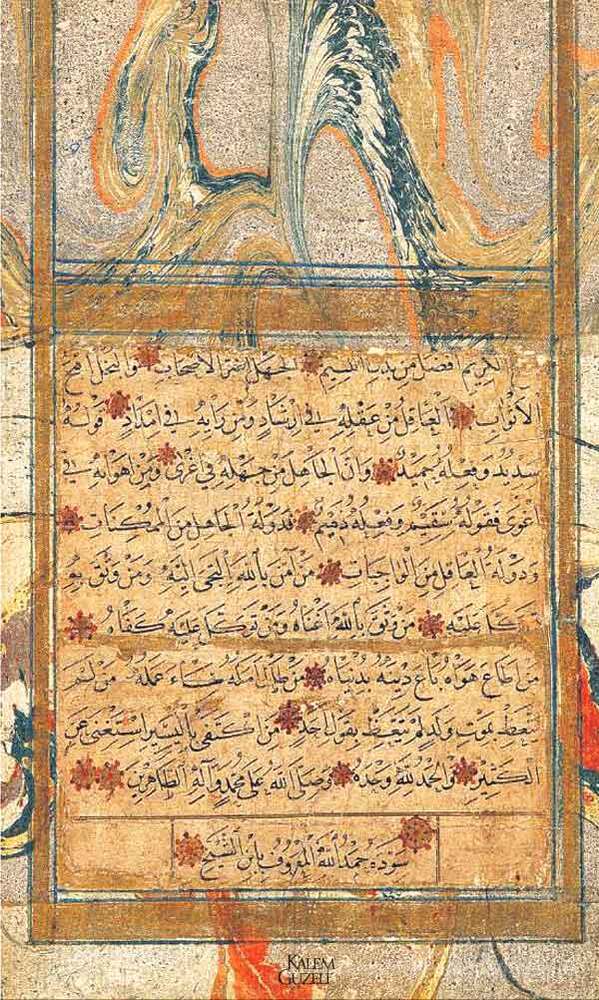 الكريم افضل من بذب اللئيم الجهل اضر الاصحاب والبخل اقبح
الاثواب العاقل من عقله في ارشاد ومن رايه في امداد فقوله
سديد وفعله حميد وان الجاهل من جهله في اغرى ومن اهوائه في
اغوى فقوله سقيم وفعله ذميم فدولة الجاهل من الممكنات
ودولة العاقل من الواجبات من آمن بالله التجى اليه ومن وثق به
توكل عليه من وثق بالله اغناه ومن توكل عليه كفاه
من اطاع هواه باع دينه بدنياه من طال امله ساء عمله من لم
يتعظ بموت ولد لم يتعظ بقول احد من اكتفى باليسير استغنى عن
الكثير والحمد لله وحده وصلى الله على محمد وآله الطاهرين
سوده حمد الله المعروف بابن الشيخ
KALEM
GUZELI